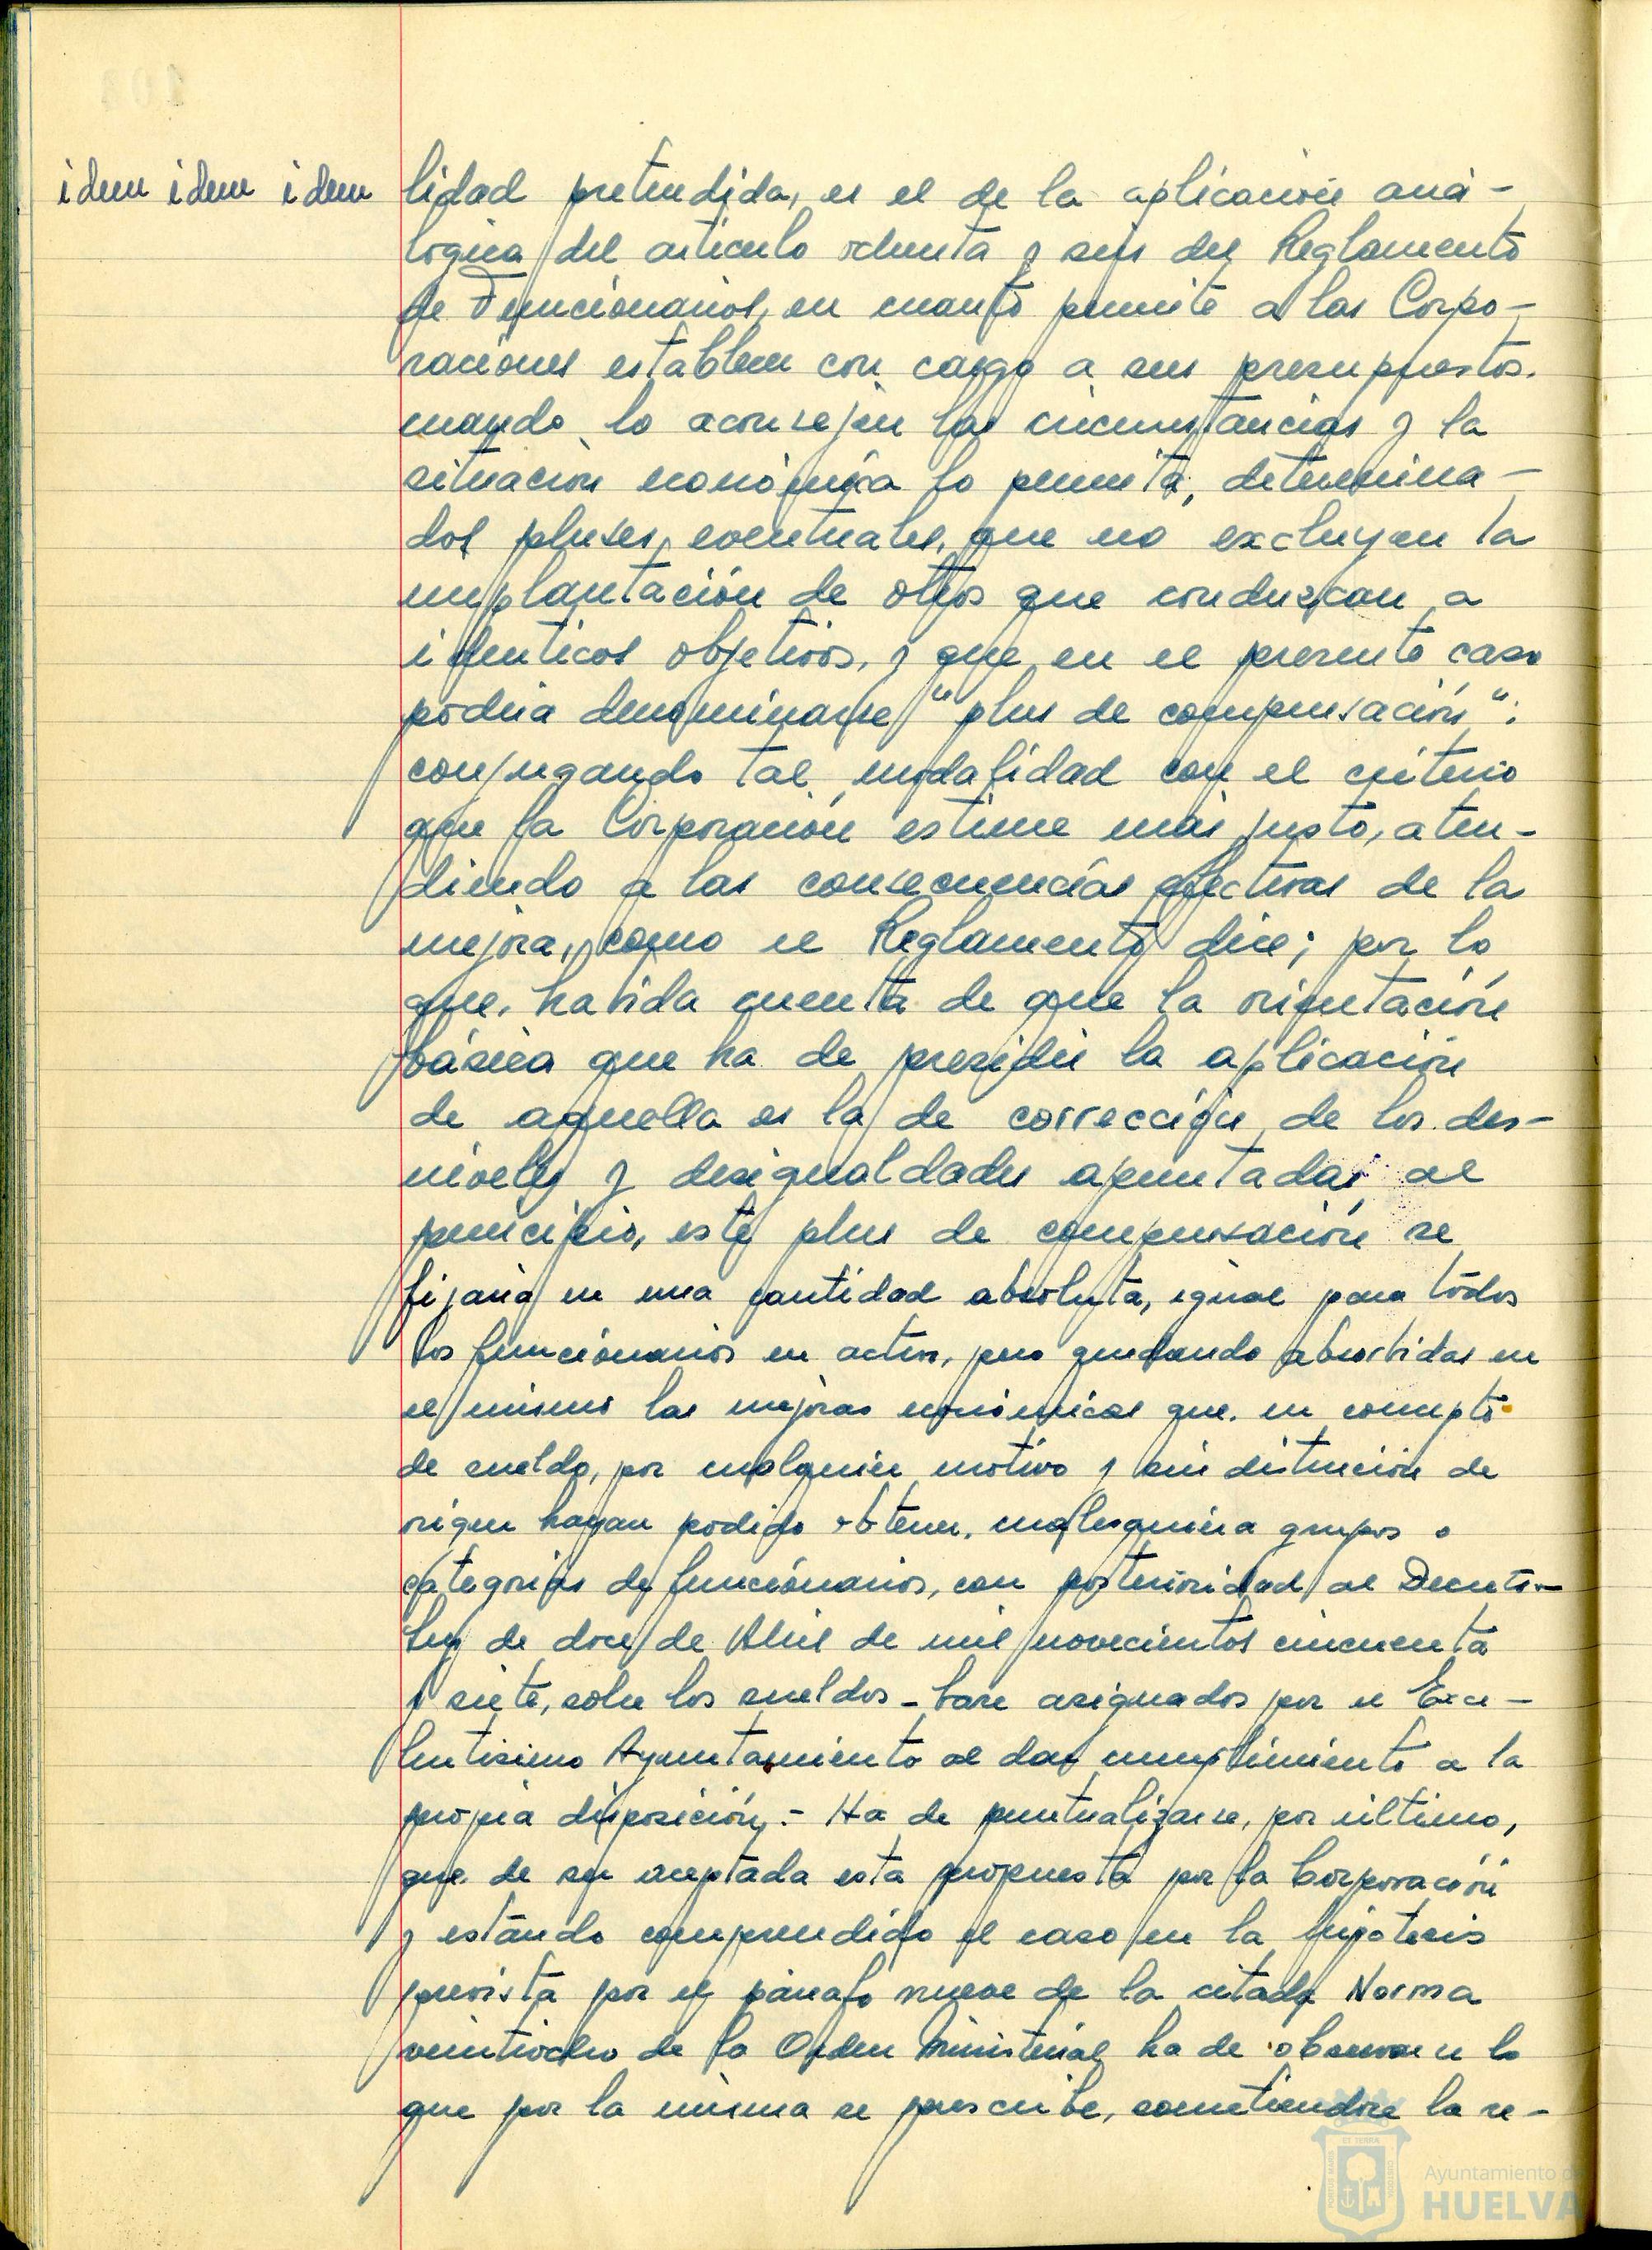 idem idem idem
lidad pretendida, es el de la aplicación aná-
lógica del artículo ochenta y seis del Reglamento
de Funcionarios, en cuanto permite a las Corpo-
raciones establecer con cargo a sus presupuestos.
cuando lo aconsejen las circunstancias y la
situación económica lo permita, determina-
dos pluses eventuales, que no excluyen la
implantación de otros que conduzcan a
idénticos objetivos, y que en el presente caso
podría denominarse "plus de compensación";
conjugando tal modalidad con el criterio
que la Corporación estime más justo, aten-
diendo a las consecuencias efectivas de la
mejora, como el Reglamento dice; por lo
que, habida cuenta de que la orientación
básica que ha de presidir la aplicación
de aquella es la de corrección de los des-
niveles y desigualdades apuntadas al
principio, este plus de compensación se
fijaría en una cantidad absoluta, igual para todos
los funcionarios en activo, pero quedando absorbidas en
el mismo las mejoras económicas que, en concepto
de sueldo, por cualquier motivo y sin distinción de
origen hayan podido obtener, cualesquiera grupos o
categorías de funcionarios, con posterioridad al Decreto-
Ley de doce de Abril de mil novecientos cincuenta
y siete, sobre los sueldos-base asignados por el Exce-
lentísimo Ayuntamiento al dar cumplimiento a la
propia disposición.- Ha de puntualizarse, por último,
que de ser aceptada esta propuesta por la Corporación
y estando comprendido el caso en la hipótesis
prevista por el párrafo nueve de la citada Norma
veintiocho de la Orden Ministerial ha de observarse lo
que por la misma se prescribe, sometiendose la re-
Ayuntamiento de
HUELVA